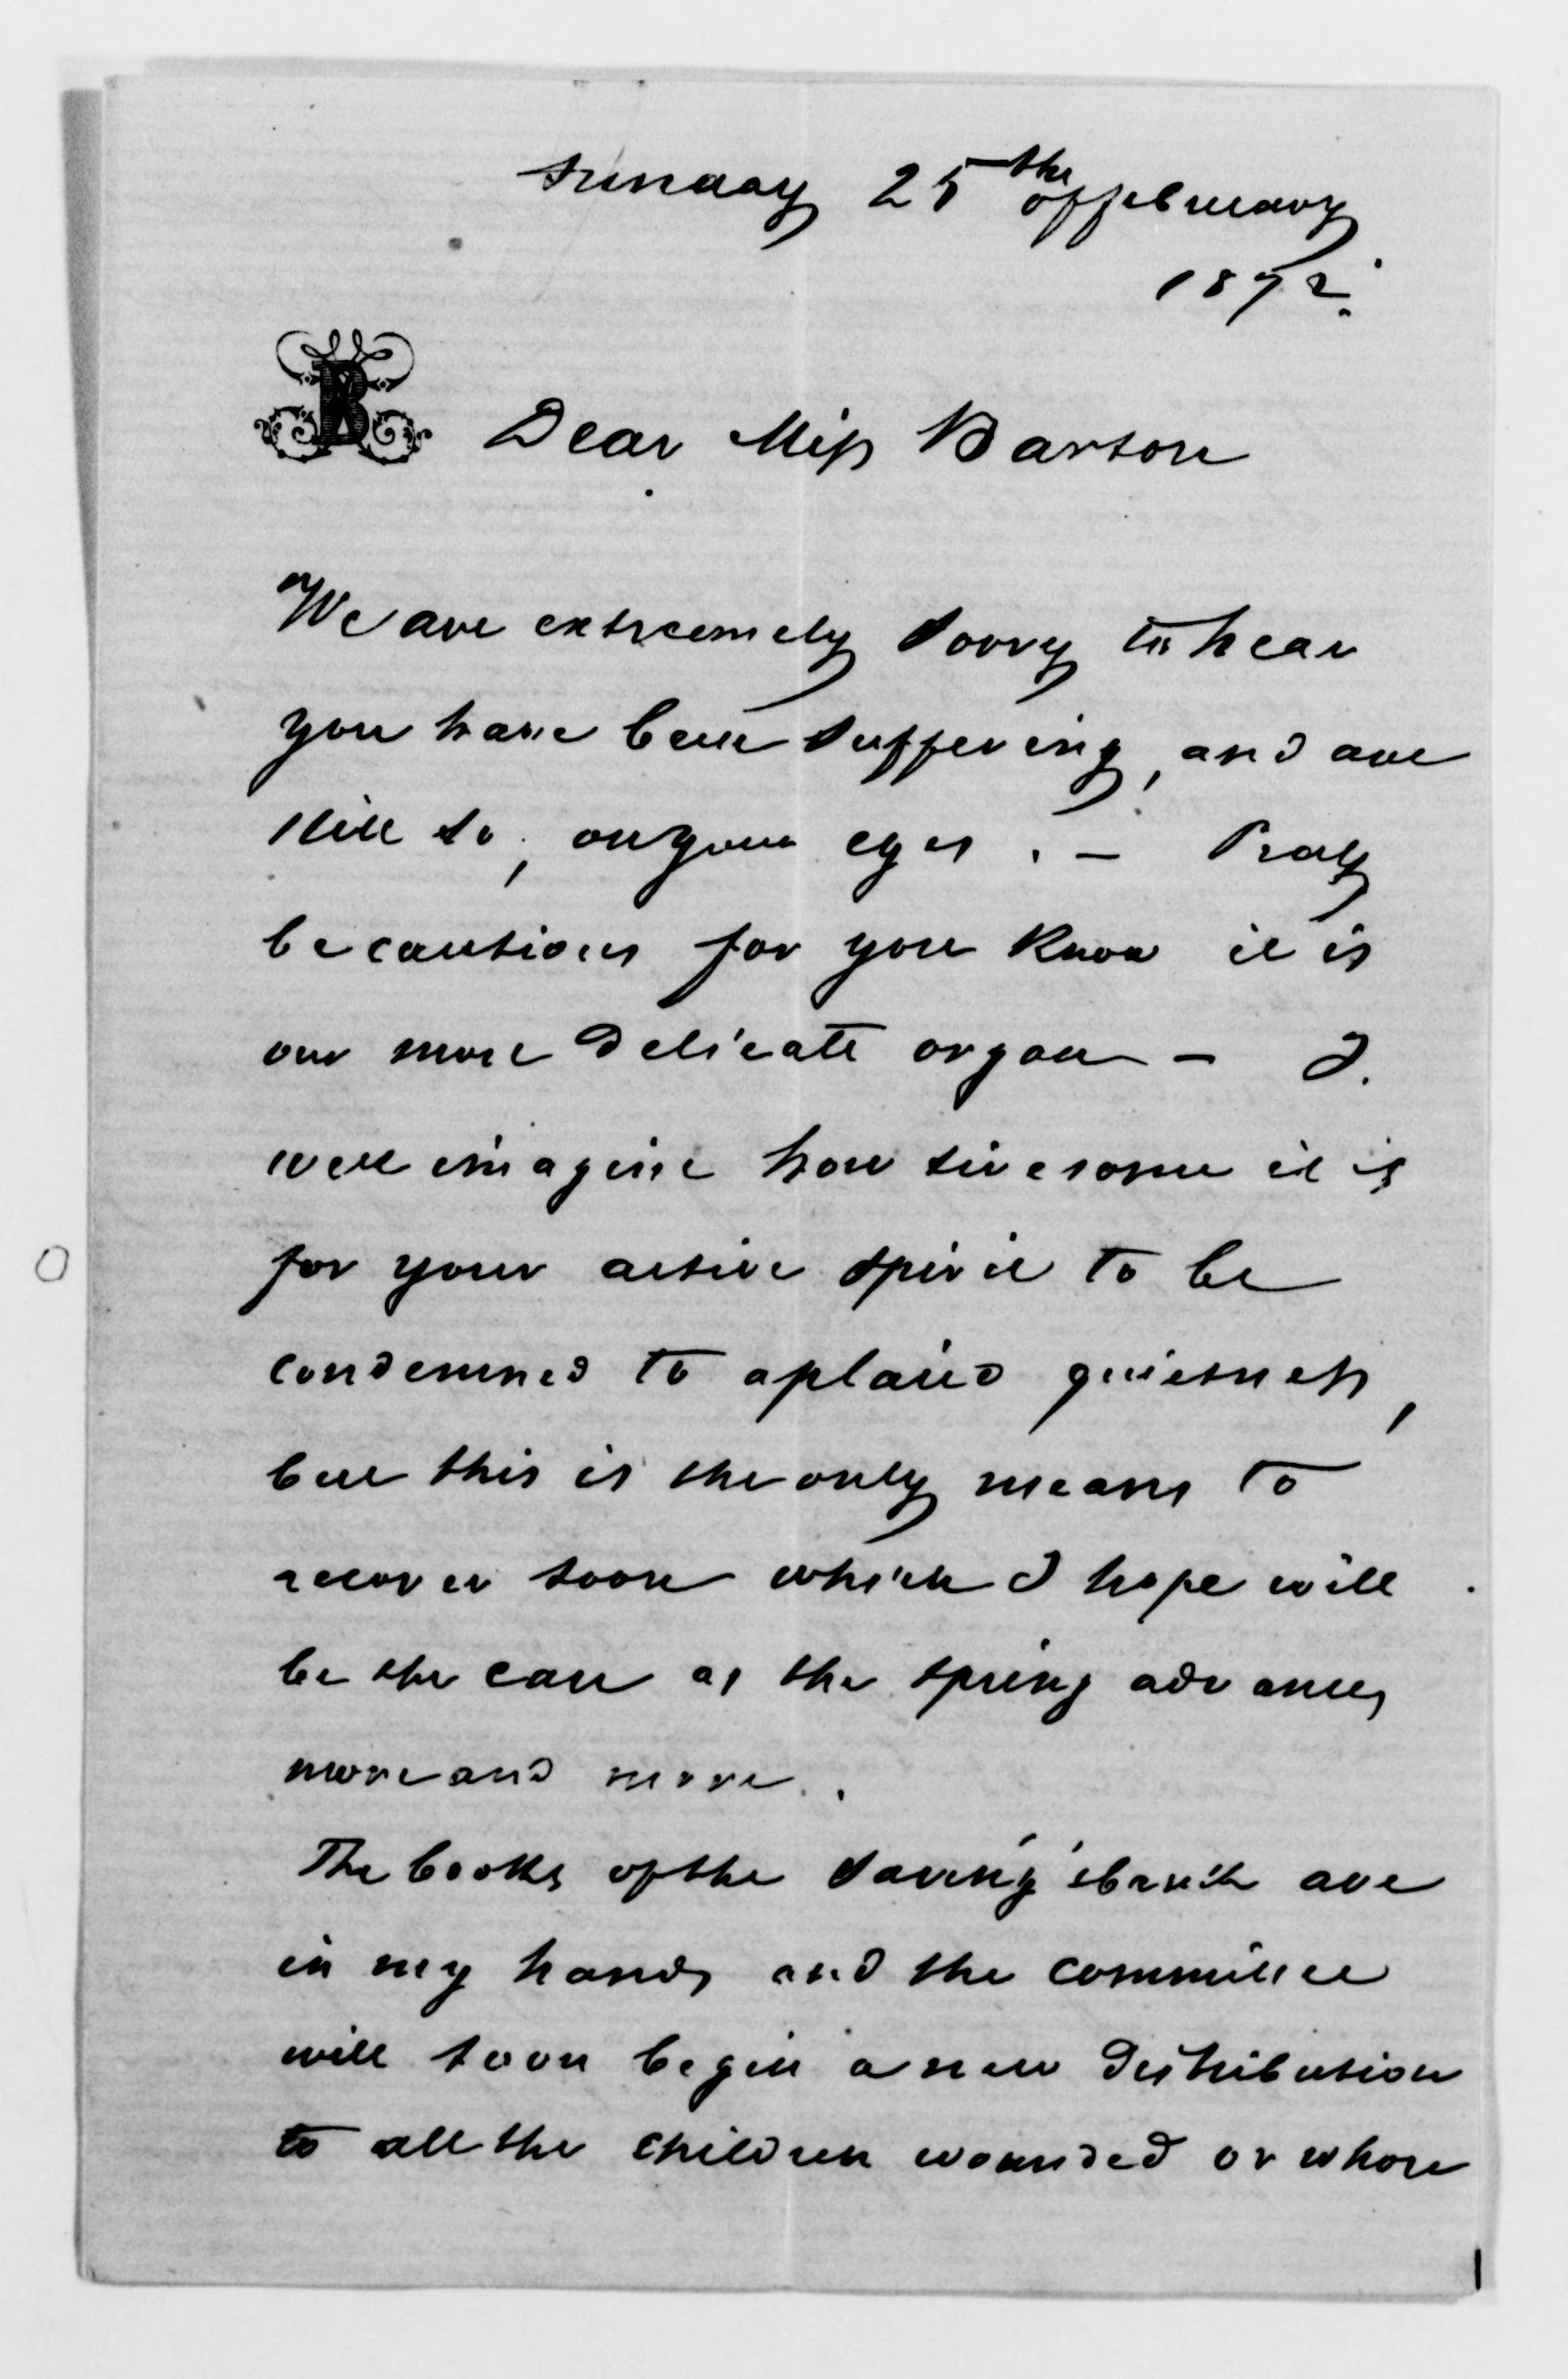 Sunday 25the of february
1872.
B
Dear Miss Barton
We are extreemely sorry to hear
you have been suffering, and are
still so, on your eyes. — Pray
be cautious for you know it is
our more delicate organ — I.
well imagine how tiresome it is
for your active spirit to be
condemned to a plaid quietness,
but this is the only means to
recover soon which I hope will
be the case as the spring advances
more and more.
The books of the saving's bank are
in my hands and the committee
will soon begin a new distribution
to all the children wounded or whose